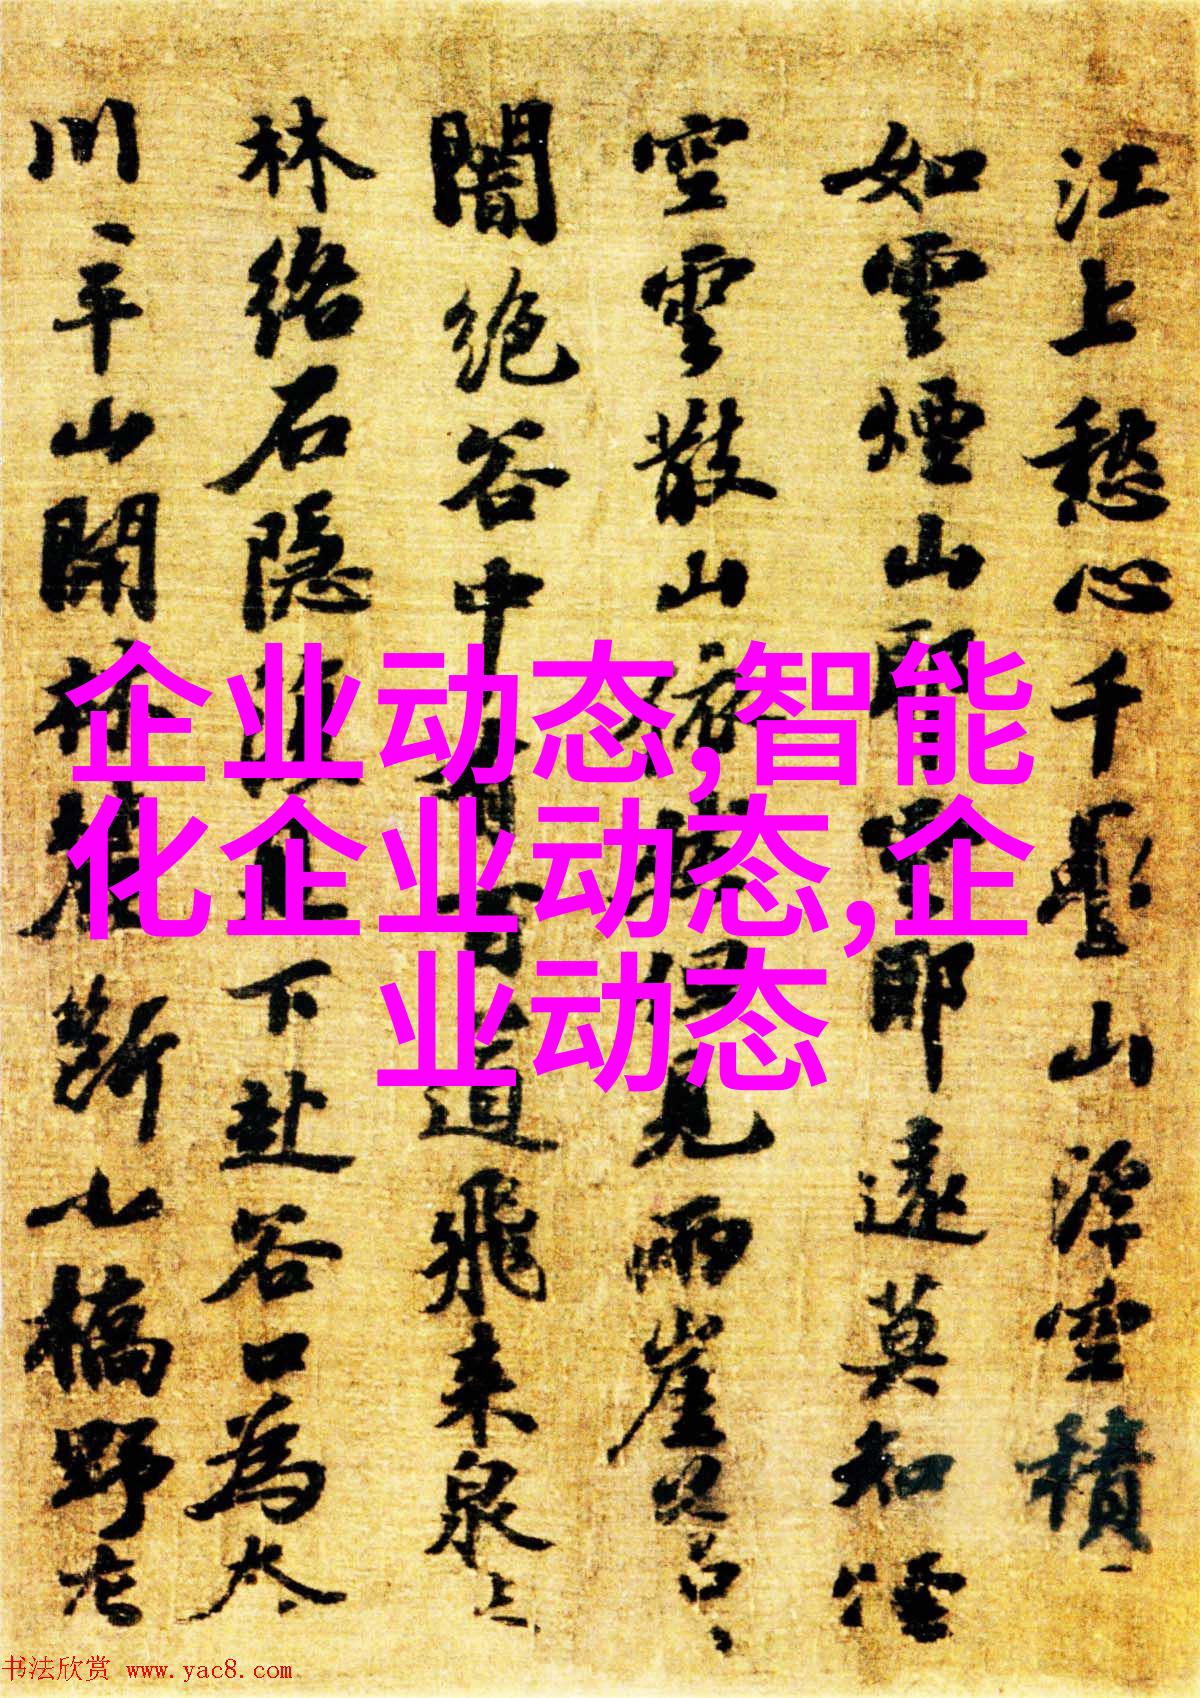 江上愁心千疊山浮空積
如雲煙山耶雲耶遠莫知煙
空雲散山依然但見兩崖蒼蒼
闇絕谷中有百道飛來泉
林絡石隱下赴谷口為
川平山開林麓斷小橋野
企业动态,智能
化企业动态,企
业动态
书法欣赏 www.yac8.com